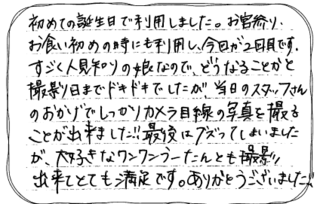 初めての誕生日で利用しました。お宮参り、
お食い初めの時にも利用し、今回が2回目です。
すごく人見知りの娘なので、どうなることかと
撮影日までドキドキでしたが、当日のスタッフさん
のおかげでしっかりカメラ目線の写真を撮る
ことが出来ました!!最後はグズってしまいました
が、大好きなワンワンうーたんとも撮影
出来てとても満足です。ありがとうございました!!